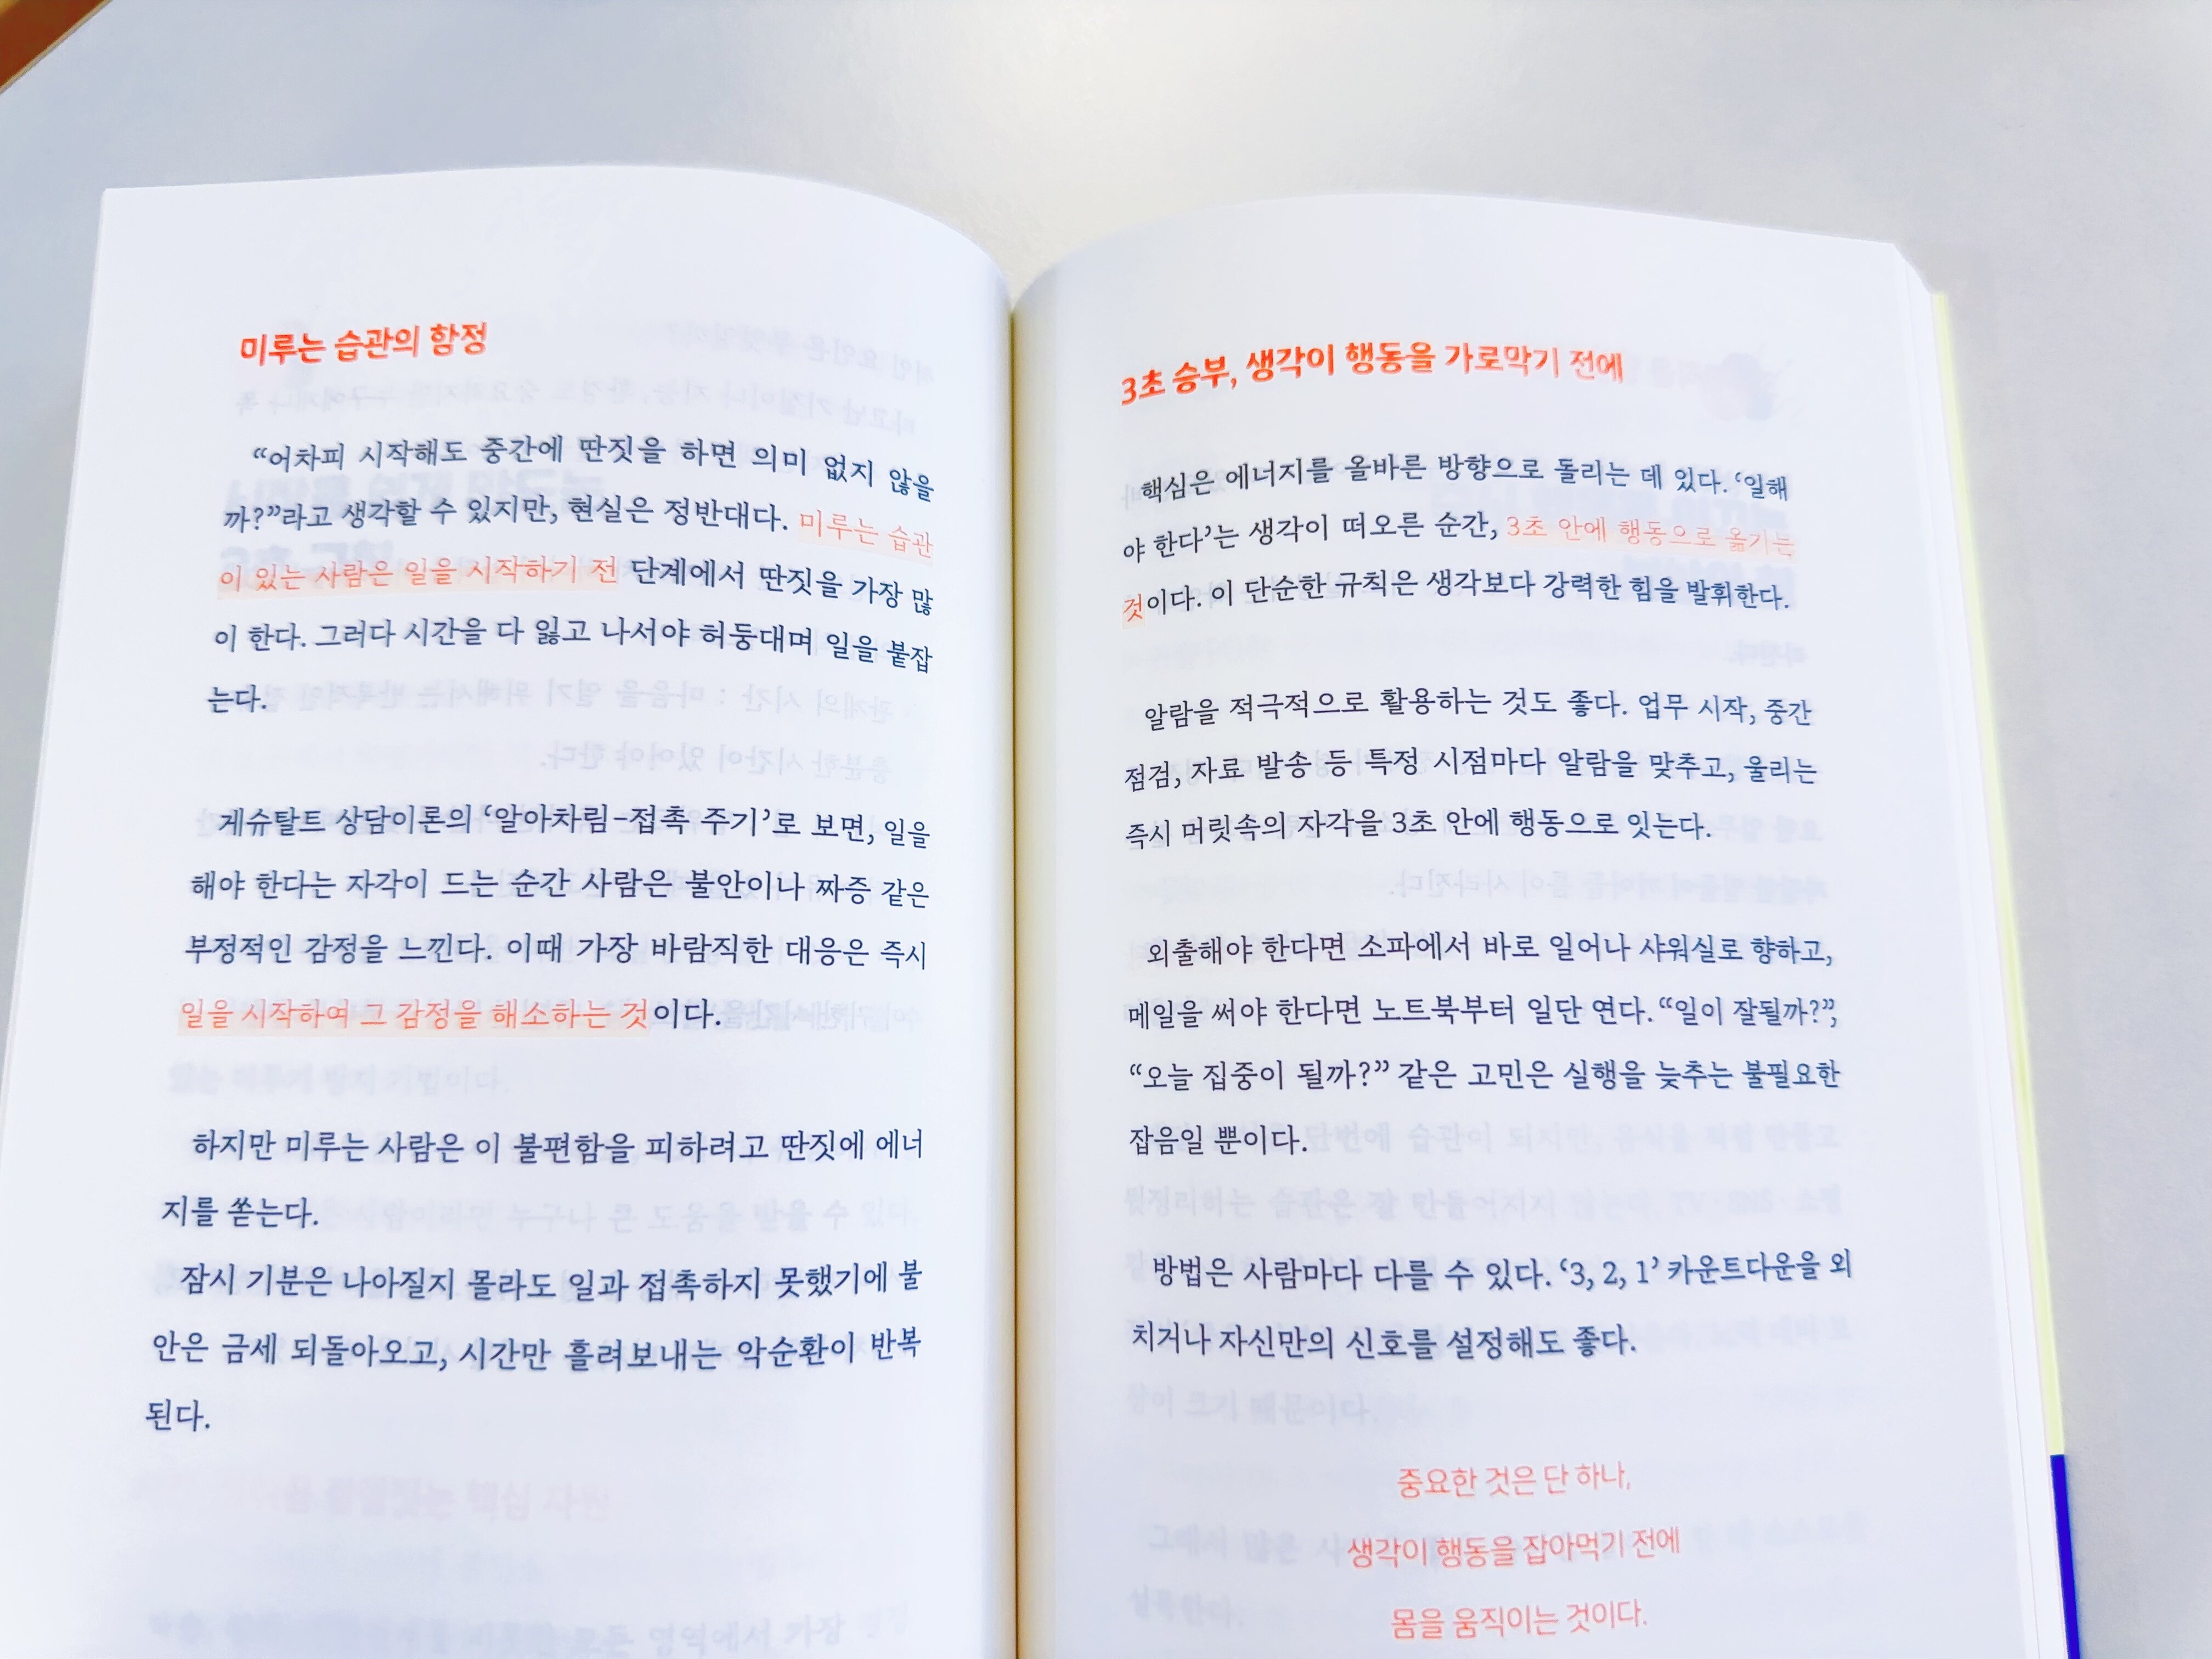 미루는 습관의 함정
“어차피 시작해도 중간에 딴짓을 하면 의미 없지 않을
까?”라고 생각할 수 있지만, 현실은 정반대다. 미루는 습관
이 있는 사람은 일을 시작하기 전 단계에서 딴짓을 가장 많
이 한다. 그러다 시간을 다 잃고 나서야 허둥대며 일을 붙잡
는다.
게슈탈트 상담이론의 ‘알아차림-접촉 주기’로 보면, 일을
해야 한다는 자각이 드는 순간 사람은 불안이나 짜증 같은
부정적인 감정을 느낀다. 이때 가장 바람직한 대응은 즉시
일을 시작하여 그 감정을 해소하는 것이다.
하지만 미루는 사람은 이 불편함을 피하려고 딴짓에 에너
지를 쏟는다.
잠시 기분은 나아질지 몰라도 일과 접촉하지 못했기에 불
안은 금세 되돌아오고, 시간만 흘려보내는 악순환이 반복
된다.
3초 승부, 생각이 행동을 가로막기 전에
핵심은 에너지를 올바른 방향으로 돌리는 데 있다. ‘일해
야 한다’는 생각이 떠오른 순간, 3초 안에 행동으로 옮기는
것이다. 이 단순한 규칙은 생각보다 강력한 힘을 발휘한다.
알람을 적극적으로 활용하는 것도 좋다. 업무 시작, 중간
점검, 자료 발송 등 특정 시점마다 알람을 맞추고, 울리는
즉시 머릿속의 자각을 3초 안에 행동으로 잇는다.
외출해야 한다면 소파에서 바로 일어나 샤워실로 향하고,
메일을 써야 한다면 노트북부터 일단 연다. “일이 잘될까?”,
“오늘 집중이 될까?” 같은 고민은 실행을 늦추는 불필요한
잡음일 뿐이다.
방법은 사람마다 다를 수 있다. ‘3, 2, 1’ 카운트다운을 외
치거나 자신만의 신호를 설정해도 좋다.
중요한 것은 단 하나,
생각이 행동을 잡아먹기 전에
몸을 움직이는 것이다.